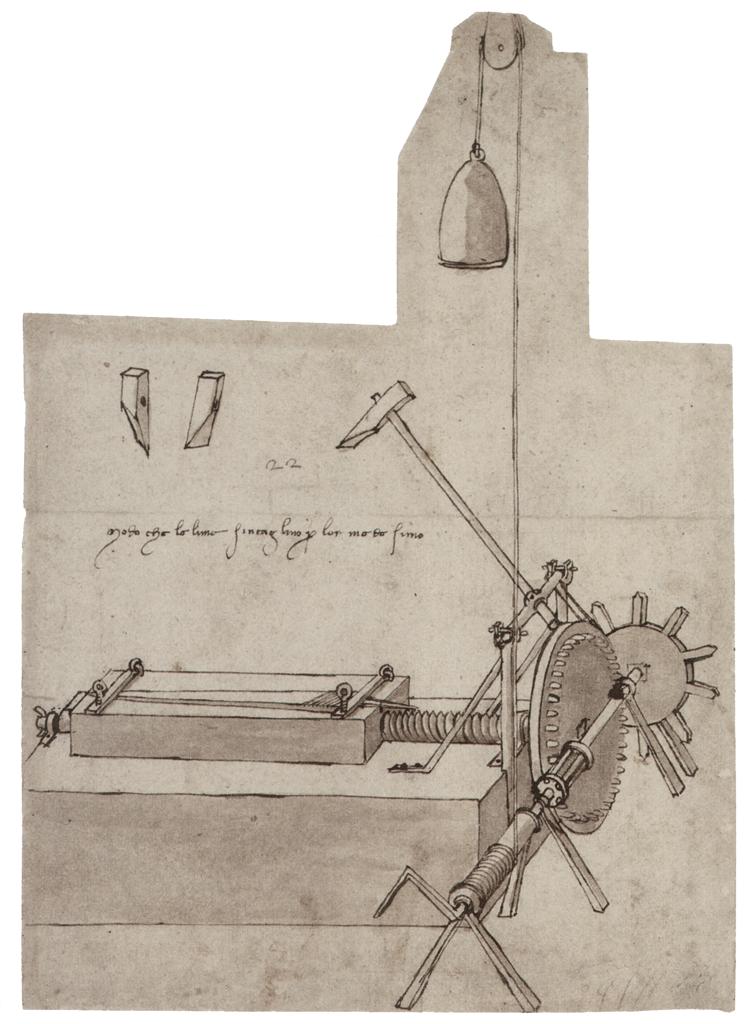 22
Modo che le lime sintag lino p lor me de simo